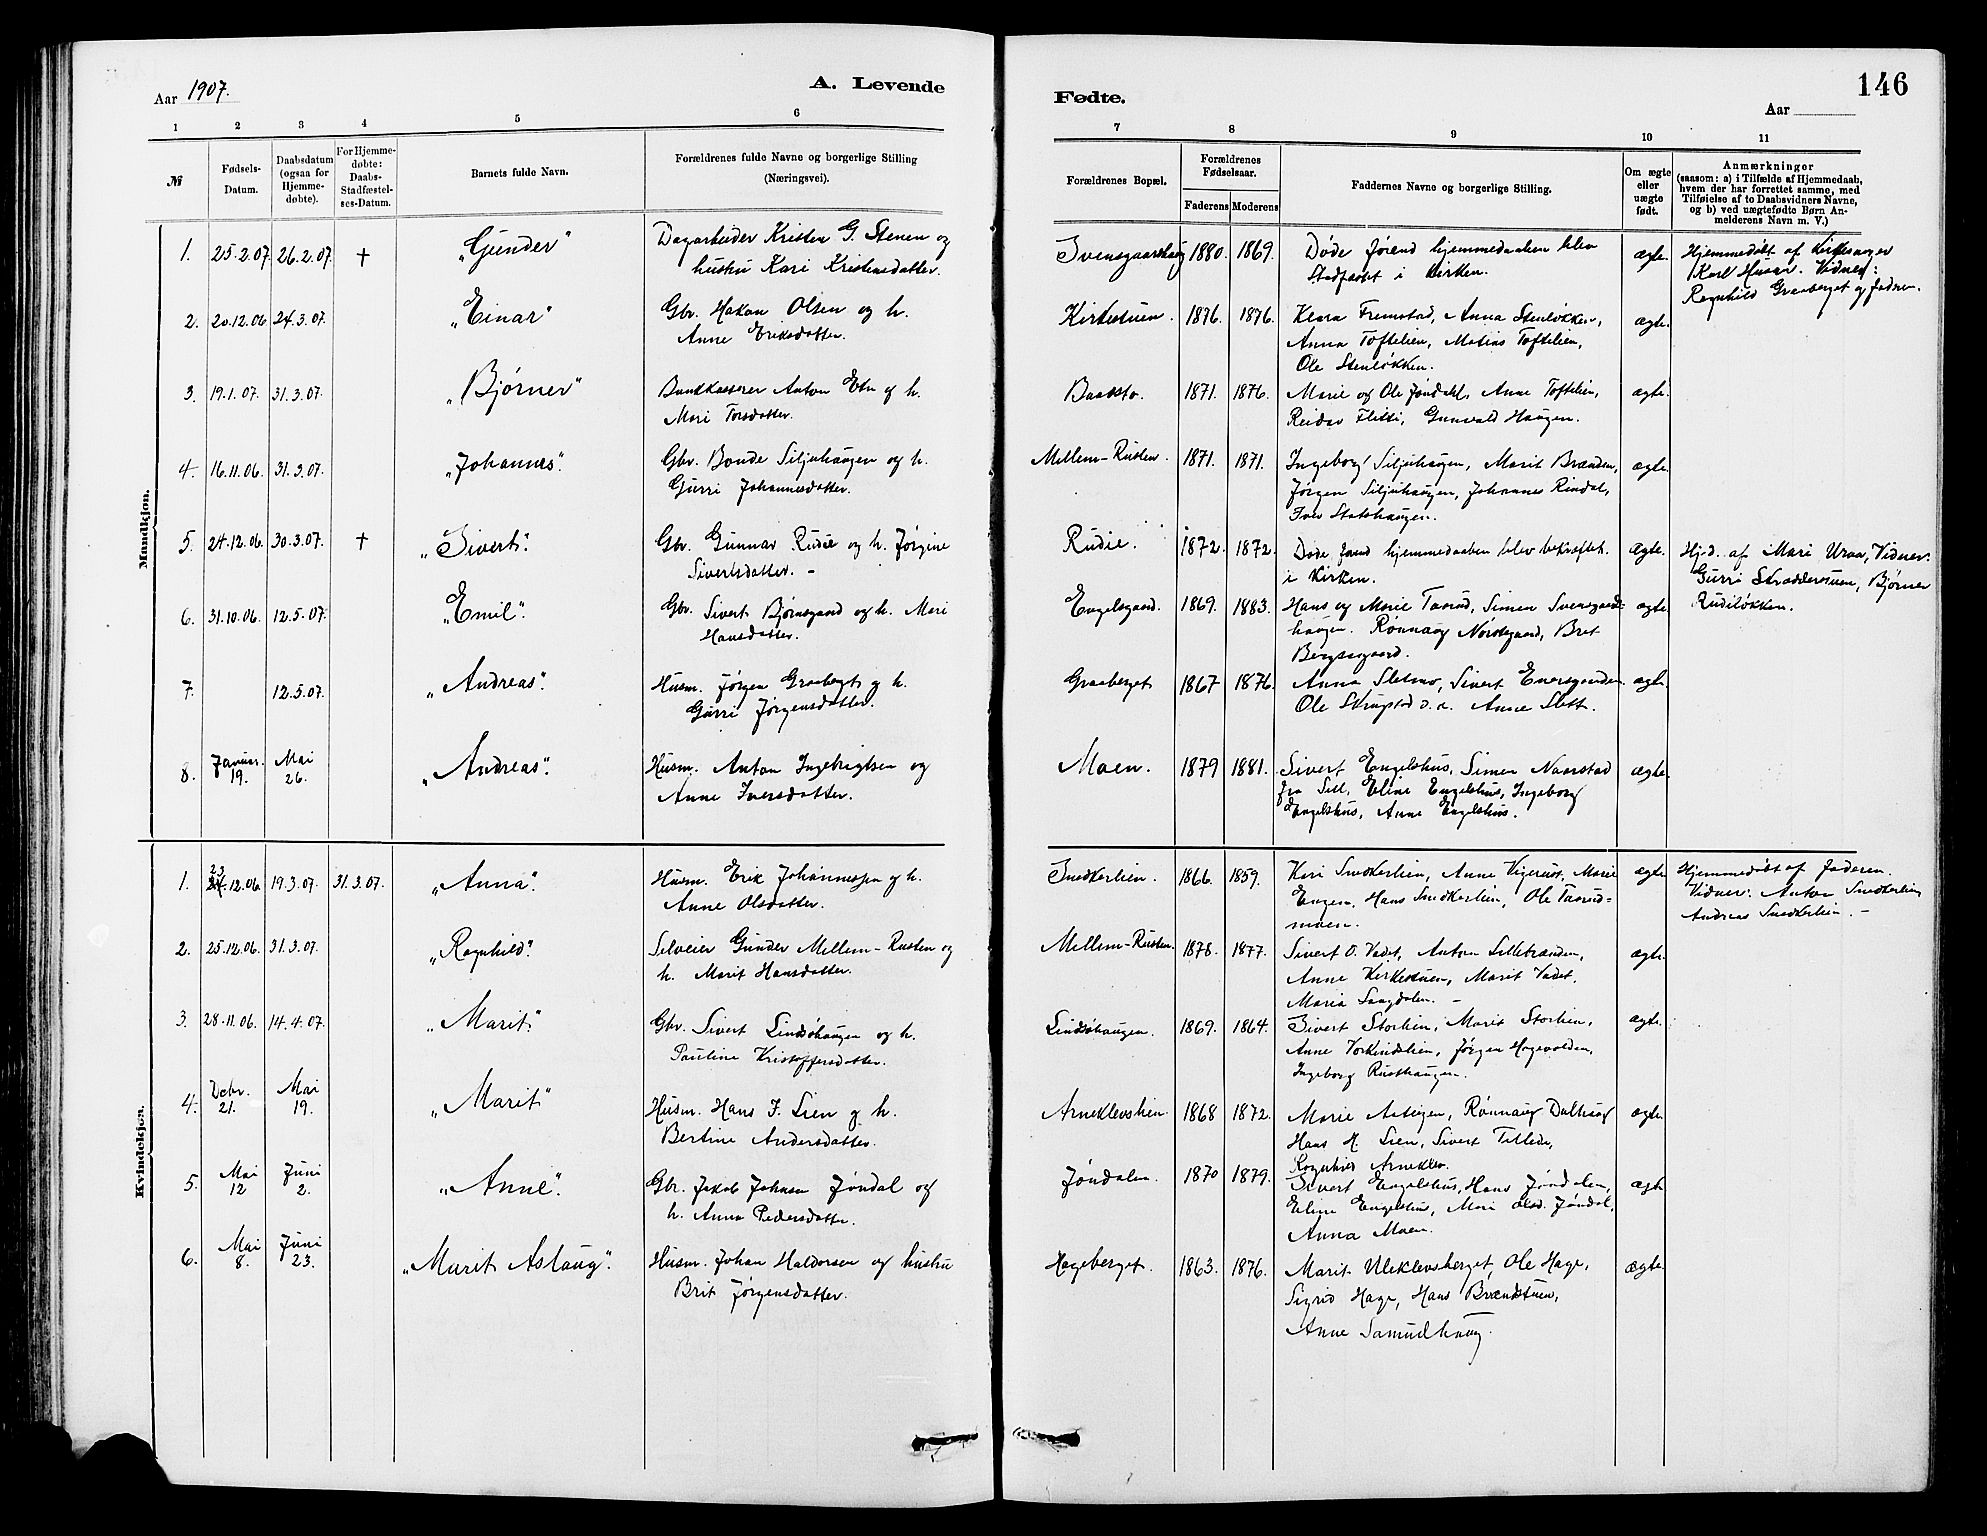 Aar 1907.
A. Levende
Fødte.
146
Aar
1 2 3 4 5 6 7 8 9 10 11
№
Fødsels-
Datum.
Daabsdatum
(ogsaa for
Hjemme-
døbte).
For Hjemme-
døbte:
Daabs-
Stadfæstel-
ses-Datum.
Barnets fulde Navn.
Forældrenes fulde Navne og borgerlige Stilling
(Næringsvei).
Forældrenes Bopæl.
Forældrenes
Fødselsaar.
Faderens Moderens
Faddernes Navne og borgerlige Stilling.
Om ægte
eller
uægte
født.
Anmærkninger
(saasom: a) i Tilfælde af Hjemmedaab,
hvem der har forrettet samme, med
Tilføielse af to Daabsvidners Navne,
og b) ved uægtefødte Børn An-
melderens Navn m. V.)
Mandkjøn.
1. 25.2.07. 26.2.07. † „Gunder"
Dagarbeider Kristen G. Stenen og
hustru Kari Kristensdatter.
1880. 1869.
Døde førend hjemmedaaben blev
Stadfæstet i Kirken.
ægte.
Hjemmedøbt af Kirkesanger
Karl Vidner:
Ragnhild Graaberget og faderen.
2. 20.12.06 24.3.07. „Einar"
Gbr. Hakon Olsen og h.
Anne Eriksdatter.
Kirkestuen. 1876. 1876.
Klara Fremstad, Anna Stenløkken,
Anna Toftelien, Matias Toftelien,
Ole Stenløkken.
ægte.
3. 19.1.07. 31.3.07. „Bjørner"
Bankkasserer Anton Etn og h.
Mari Torsdatter.
Baaksto. 1871. 1876.
Marie og Ole Jøndahl, Anne Toftelien,
Reidar Flitti, Gunvald Haugen.
ægte.
4. 16.11.06. 31.3.07. „Johannes".
Gbr. Bonde Siljuhaugen og h.
Gurri Johannesdatter.
Mellem-Rusten. 1871. 1871.
Ingeborg Siljuhaugen, Marit Brænden,
Jørgen Siljuhaugen, Johannes Rindal,
Iver
ægte.
5. 24.12.06. 30.3.07. † „Sivert".
Gbr. Gunnar Rudie og h. Jørgine
Sivertsdatter. –
Rudie. 1872. 1872.
Døde førend hjemmedaaben blev bekræftet.
i Kirken.
Ægte.
Hj.d. af Mari Uraa, Vidner:
Gurri Bjørner
Rudiløkken.
6. 31.10.06. 12.5.07. „Emil".
Gbr. Sivert Bjørnsgaard og h. Mari
Hansdatter.
Engelsgaard. 1869. 1883.
Hans og Marie Taarud, Simen Svensgaard-
haugen. Rønnaug Nørstegaard, Brit
ægte.
7. 12.5.07. „Andreas".
Husm. Jørgen Graaberget og h.
Gurri Jørgensdatter.
Graaberget 1867 1876.
Anna Sletmo, Sivert
Ole Skrugstad Anne Slett.
ægte.
8. Januar. 19. Mai 26. „Andreas".
Husm. Anton Ingebrigtsen og
Anne Iversdatter.
Moen. 1879 1881.
Sivert Engelshus, Simen Naarstad
fra Sell, Eline Engelshus, Ingeborg
Engelshus, Anne Engelshus.
ægte.
Kvindekjøn.
1. 23.12.06. 19.3.07. 31.3.07. „Anna".
Husm. Erik Johannessen og h.
Anne Olsdatter.
Snedkerlien. 1866. 1859.
Kari Snedkerlien, Anne Vigerust, Marie
Engen, Hans Snedkerlien, Ole Taarud-
moen.
ægte
Hjemmedøbt af faderen.
Vidner: Anton Snedkerlien
Andreas Snedkerlien. –
2. 25.12.06. 31.3.07. „Ragnhild".
Selveier Gunder Mellem-Rusten og
h. Marit Hansdatter.
Mellem-Rusten. 1878. 1877.
Sivert O. Vadet, Anton Lillebrænden,
Anne Kirkestuen, Marit Vadet,
Maria Saagdalen. –
ægte.
3. 28.11.06. 14.4.07. „Marit"
Gbr. Sivert Lindsøhaugen og h.
Pauline Kristoffersdatter.
Lindsøhaugen. 1869. 1864.
Sivert Storlien, Marit Storlien,
Anne Vorkindslien, Jørgen Hagevolden,
Ingeborg Rusthaugen.
ægte.
4. Debr. 21. Mai 19. „Marit"
Husm. Hans J. Lien og h.
Bertine Andersdatter.
Arneklevslien. 1868 1872.
Marie Rønnaug Dalhaug
Hans H. Lien, Sivert
Ragnhild Arneklev.
ægte.
5. Mai 12 Juni 2. „Anne".
Gbr. Jakob Johnsen Jøndal og
h. Anna Pedersdatter.
Jøndalen. 1870 1879.
Sivert Engelshus, Hans Jøndalen,
Eline Engelshus, Mari Olsd. Jøndal,
Anna Moen.
ægte
6. Mai 8. Juni 23. „Marit Aslaug".
Husm. Johan Haldorsen og hustru
Brit Jørgensdatter.
Hageberget. 1863. 1876.
Marit Uleklevsberget, Ole Hage,
Sigrid Hage, Hans Brændstuen,
Anne Samuelhaug.
ægte.